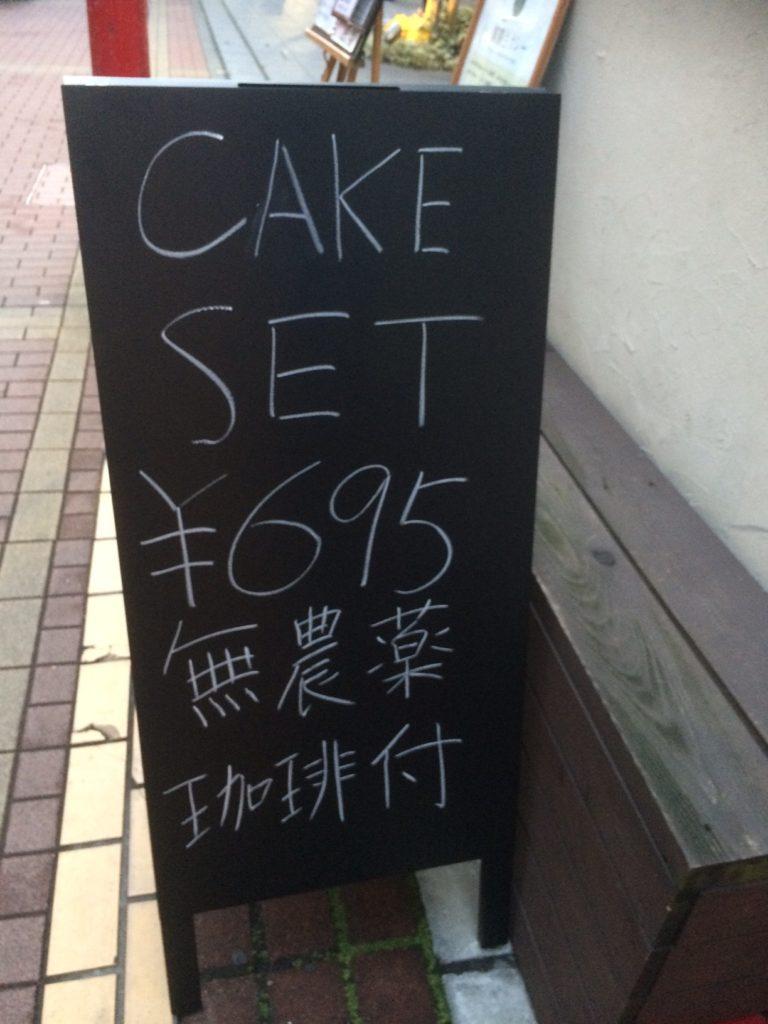 CAKE
SET
¥695
無農薬
珈琲付